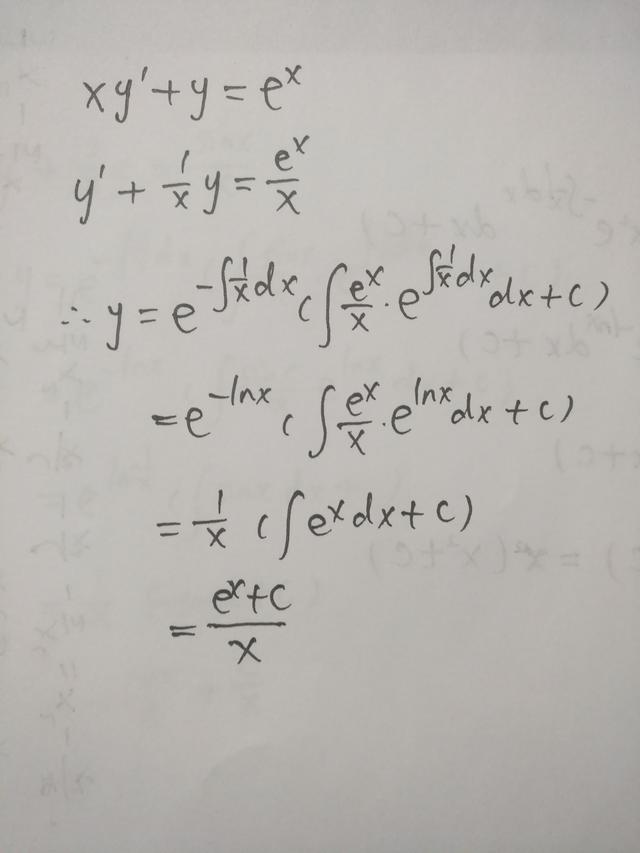 xy'+y=e^x
y'+1/x y=e^x/x
∴y=e^(-∫1/x dx)(∫e^x/x·e^(∫1/x dx)dx+C)
=e^(-lnx)(∫e^x/x·e^(lnx)dx+C)
=1/x(∫e^x dx+C)
=(e^x+C)/x